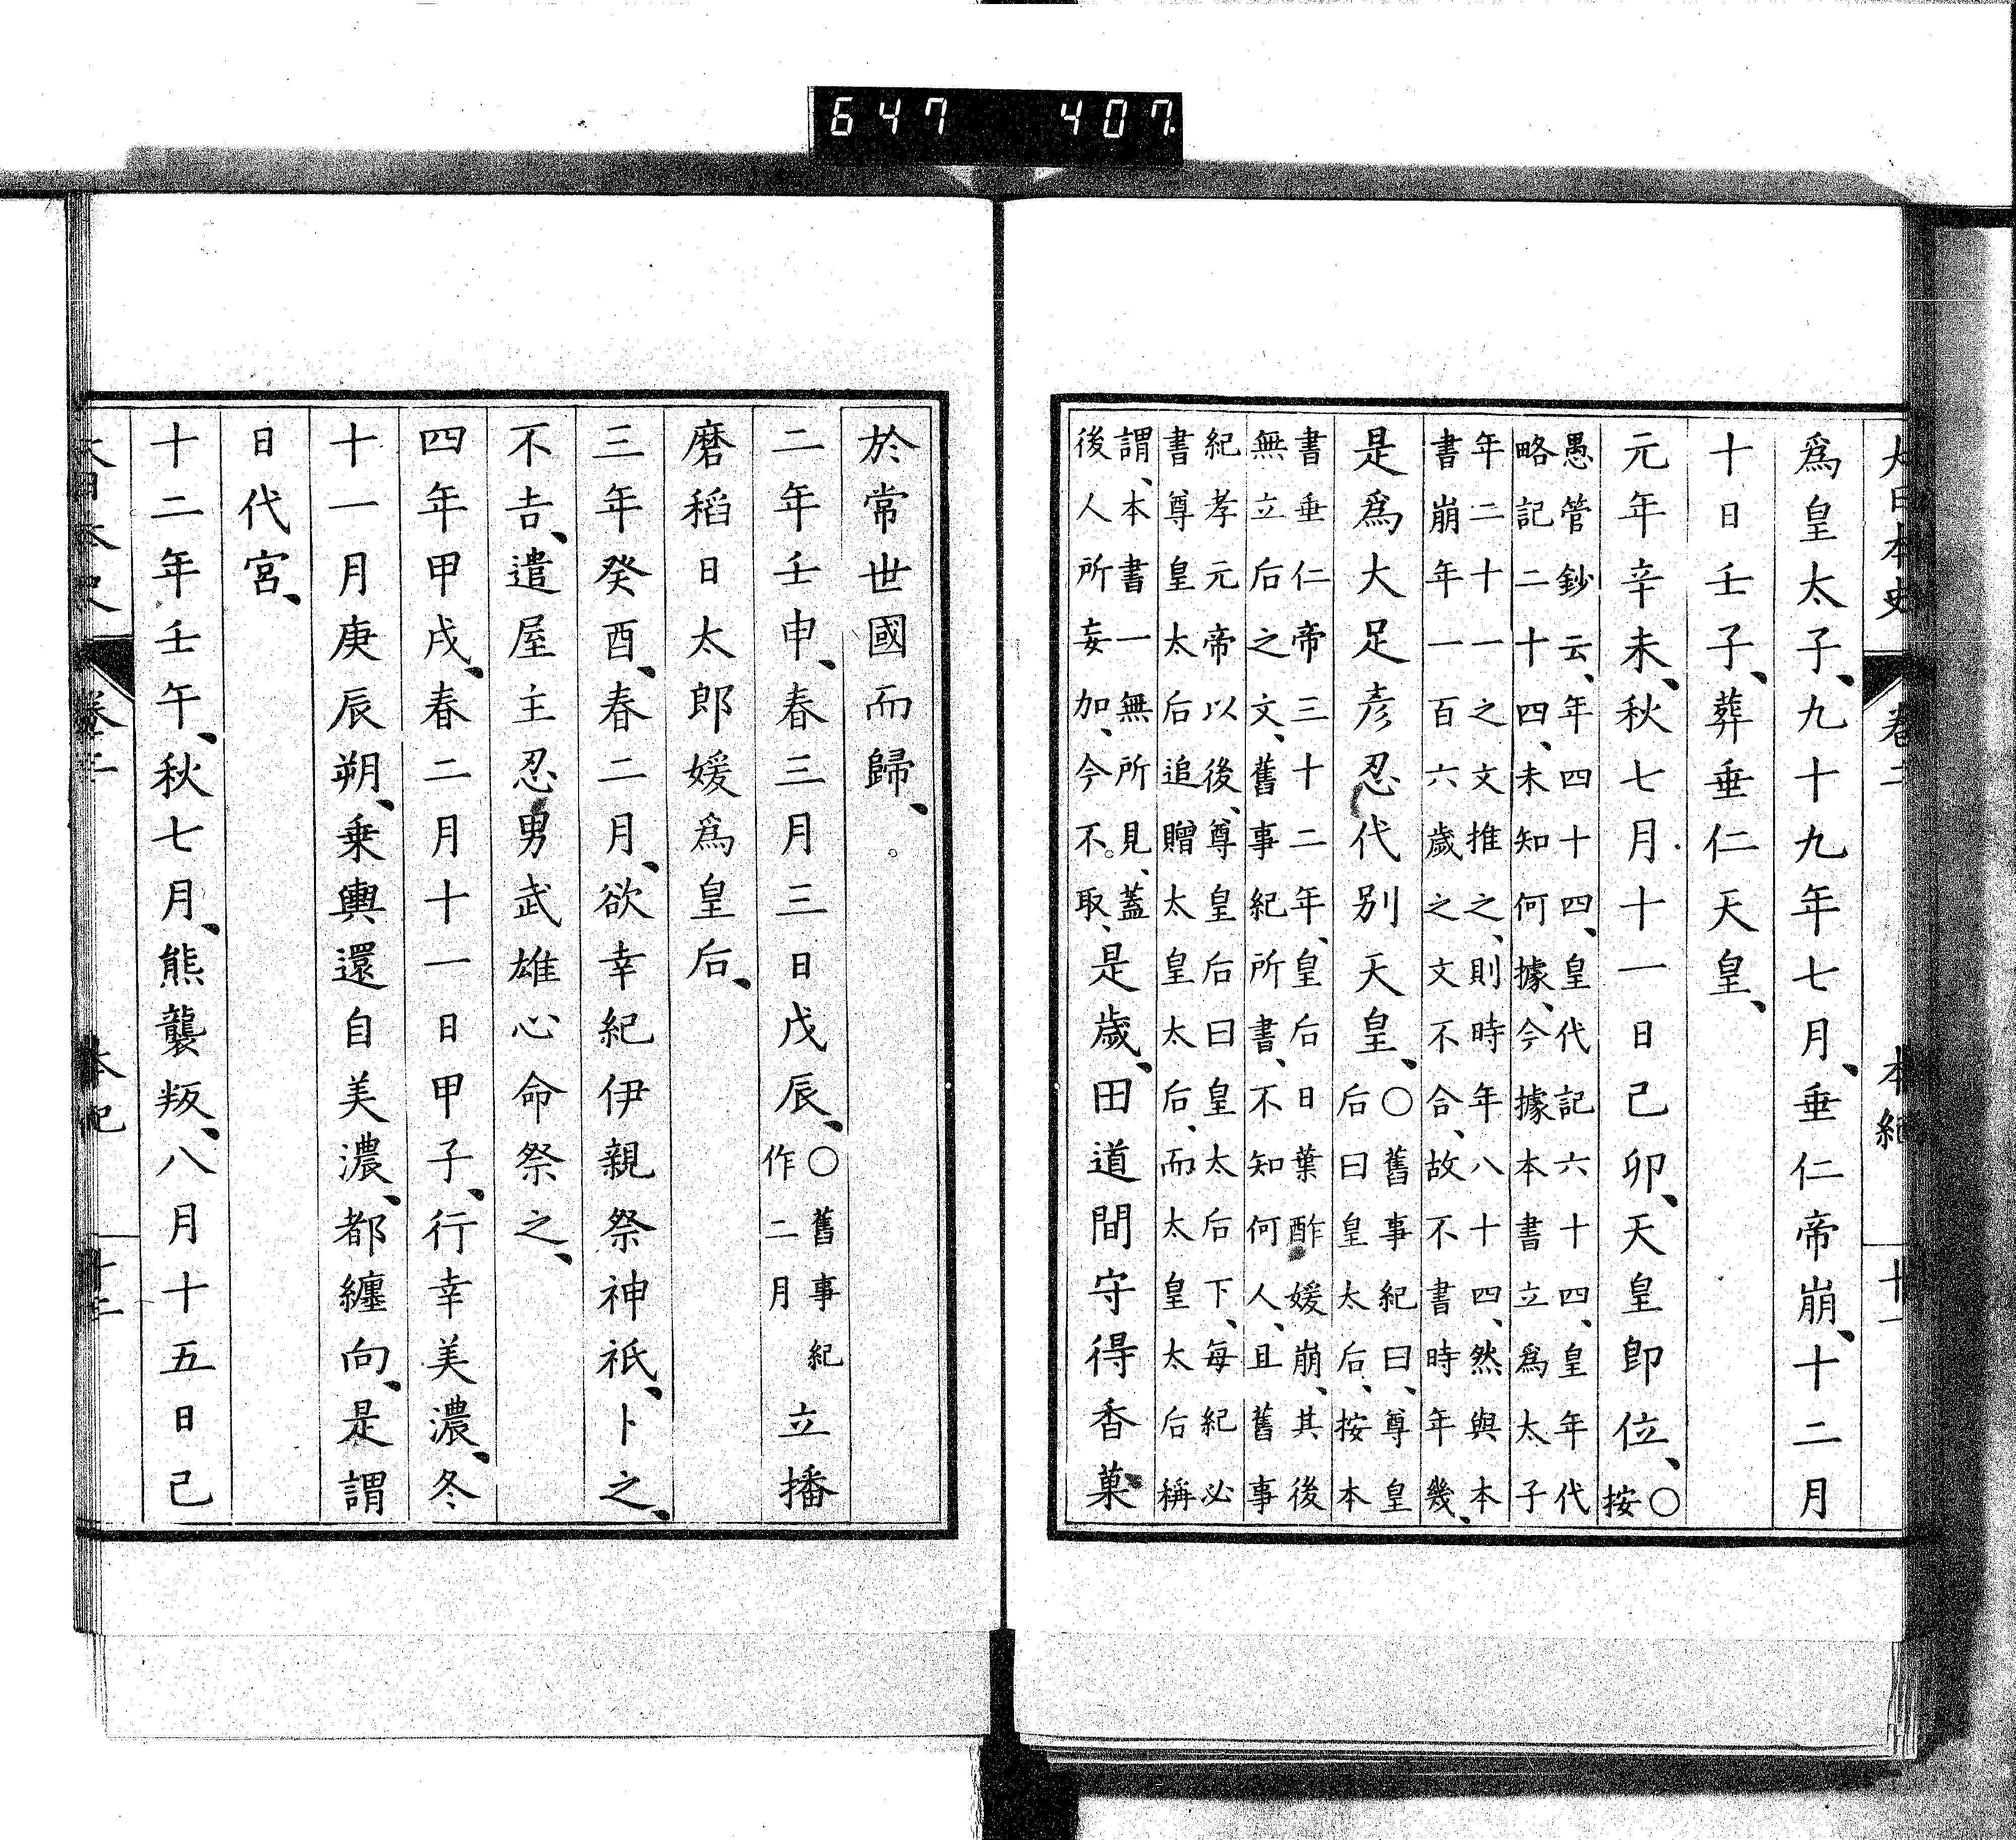 647 407
大日本史 卷二 本紀 十一
爲皇太子、九十九年七月、垂仁帝崩、十二月
十日壬子、葬垂仁天皇、
元年辛未、秋七月十一日己卯、天皇卽位、○按
愚管鈔云、年四十四、皇代記六十四、皇年代
略記二十四、未知何據、今據本書立爲太子
年二十一之文推之、則時年八十四、然與本
書崩年一百六歲之文不合、故不書時年幾、
是爲大足彥忍代別天皇、○舊事紀曰、尊皇
后曰皇太后、按本
書垂仁帝三十二年、皇后日葉酢媛崩、其後
無立后之文、舊事紀所書、不知何人、且舊事
紀孝元帝以後、尊皇后曰皇太后下、每紀必
書尊皇太后追贈太皇太后、而太皇太后稱
謂、本書一無所見、蓋
後人所妄加、今不取、是歲、田道間守得香菓
於常世國而歸、
二年壬申、春三月三日戊辰、○舊事紀作二月立播
磨稻日太郎媛爲皇后、
三年癸酉、春二月、欲幸紀伊親祭神祇、卜之、
不吉、遣屋主忍男武雄心命祭之、
四年甲戌、春二月十一日甲子、行幸美濃、冬
十一月庚辰朔、乘輿還自美濃、都纏向、是謂
日代宮、
十二年壬午、秋七月、熊襲叛、八月十五日己
大日本史 卷三 本紀 十二